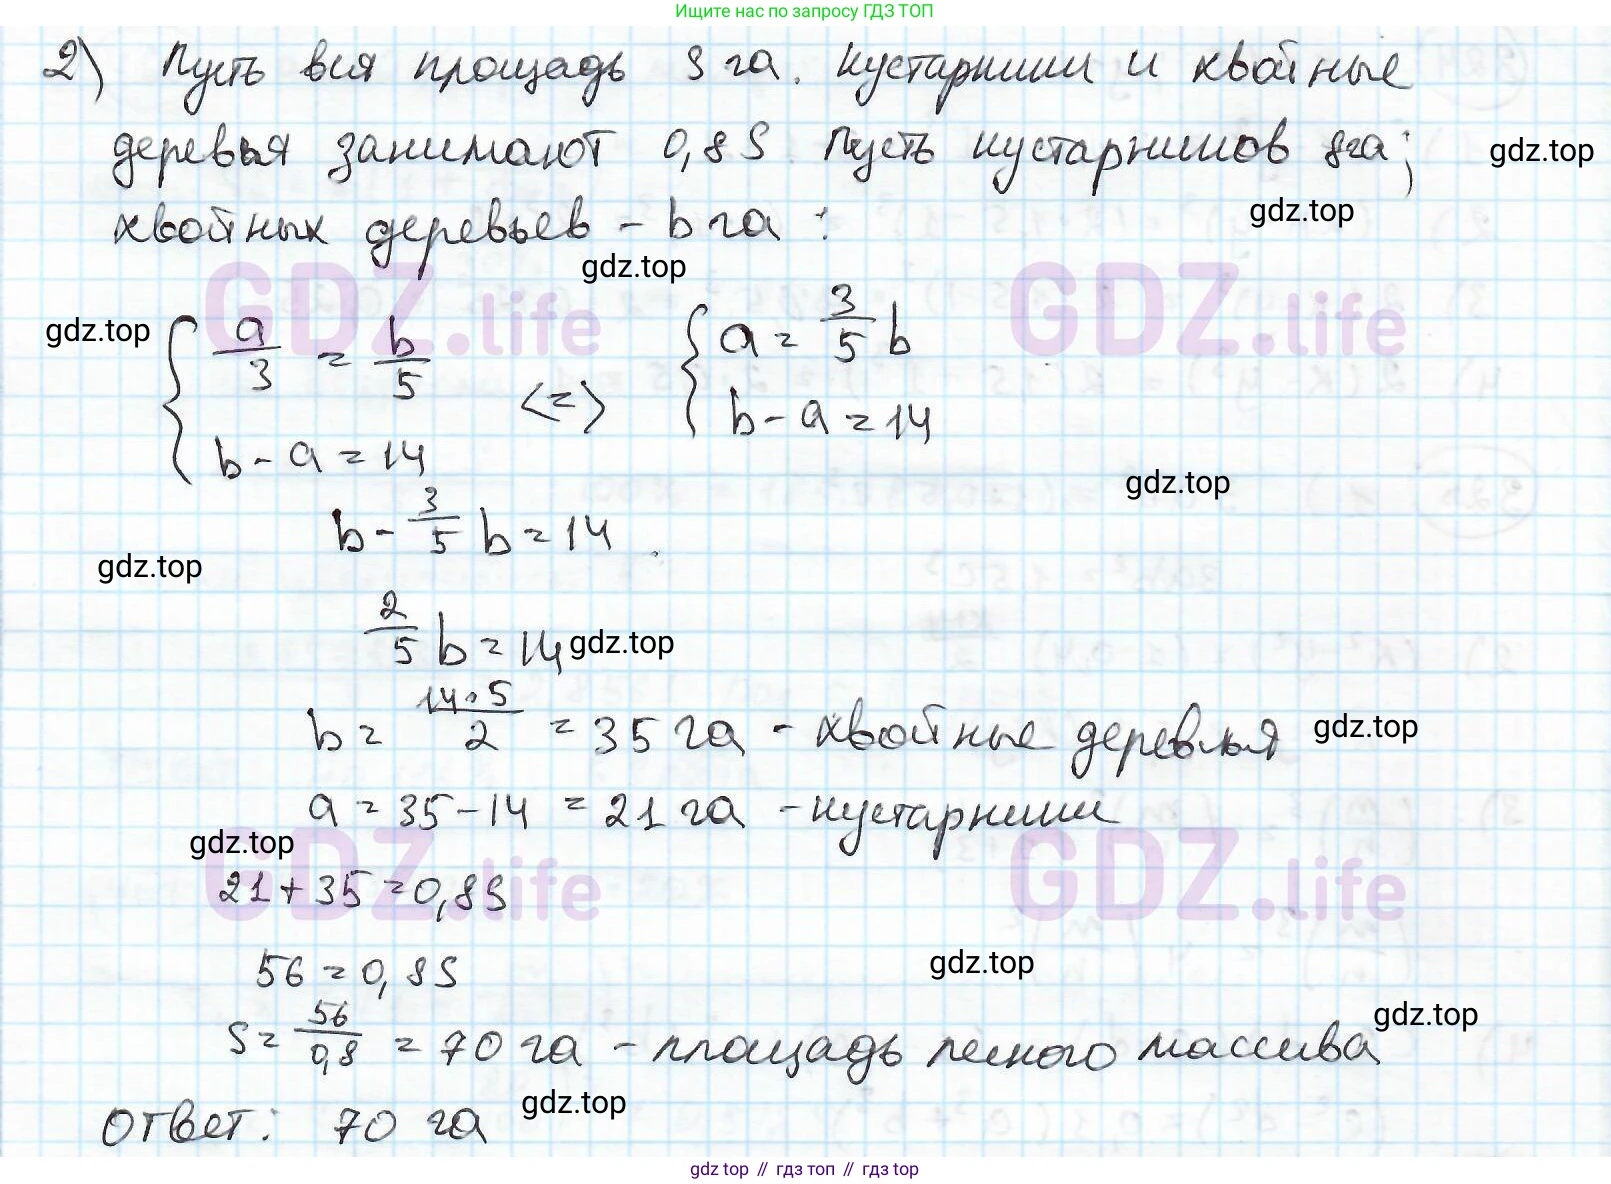 Ищите нас по запросу ГДЗ ТОП
2) Пусть вся площадь S га. Кустарники и хвойные
деревья занимают 0,8S. Пусть кустарников га;
gdz.top
хвойных деревьев – b га :
gdz.top
gdz.top
GDZ.life GDZ.life
gdz.top
{ a/3 = b/5 <=> { a = 3/5 b
b - a = 14 b - a = 14
gdz.top
b - 3/5 b = 14
gdz.top
2/5 b = 14 gdz.top
b = 14·5/2 = 35 га - хвойные деревья gdz.top
a = 35 - 14 = 21 га - кустарники
gdz.top
GDZ.life GDZ.life
21 + 35 = 0,8S
56 = 0,8S gdz.top
S = 56/0,8 = 70 га - площадь лесного массива gdz.top
Ответ: 70 га gdz.top
gdz top // гдз топ // gdz top